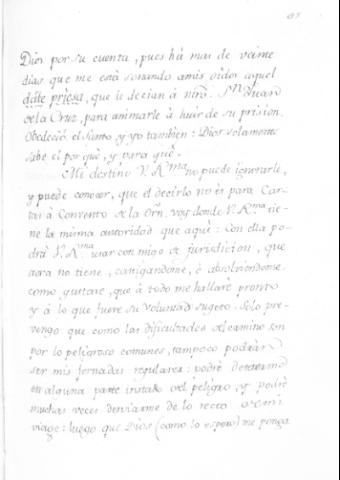 Dios por su cuenta, pues há mas de veinte
dias que me está sonando amis oidos aquel
dáte priesa, que le decian à ntrõ. Sn. Juan
de la Cruz, para animarle à huir de su prision.
Obedeció el Santo, y yo tambien: Dios solamente
sabe el por què, y para què.
Mi destino V. Rma. no puede ignorarle,
y puede conocer, que el decirlo no es para Car-
tas: à Convento de la Orn. voy donde V. Rma. tie-
ne la misma autoridad que aqui: Con ella po-
drà V. Rma. usar con migo de jurisdicion, que
aora no tiene, castigandome, ò absolviendome
como gustare, que à todo me hallarè pronto
y à lo que fuere su voluntad sugeto. Solo pre-
vengo que como las dificultades del camino son
por lo peligroso comunes, tampoco podràn
ser mis jornadas regulares: podrè detenerme
en alguna parte instado del peligro, y podrè
muchas veces desviarme de lo recto de mi
viage: luego que Dios (como lo espero) me ponga